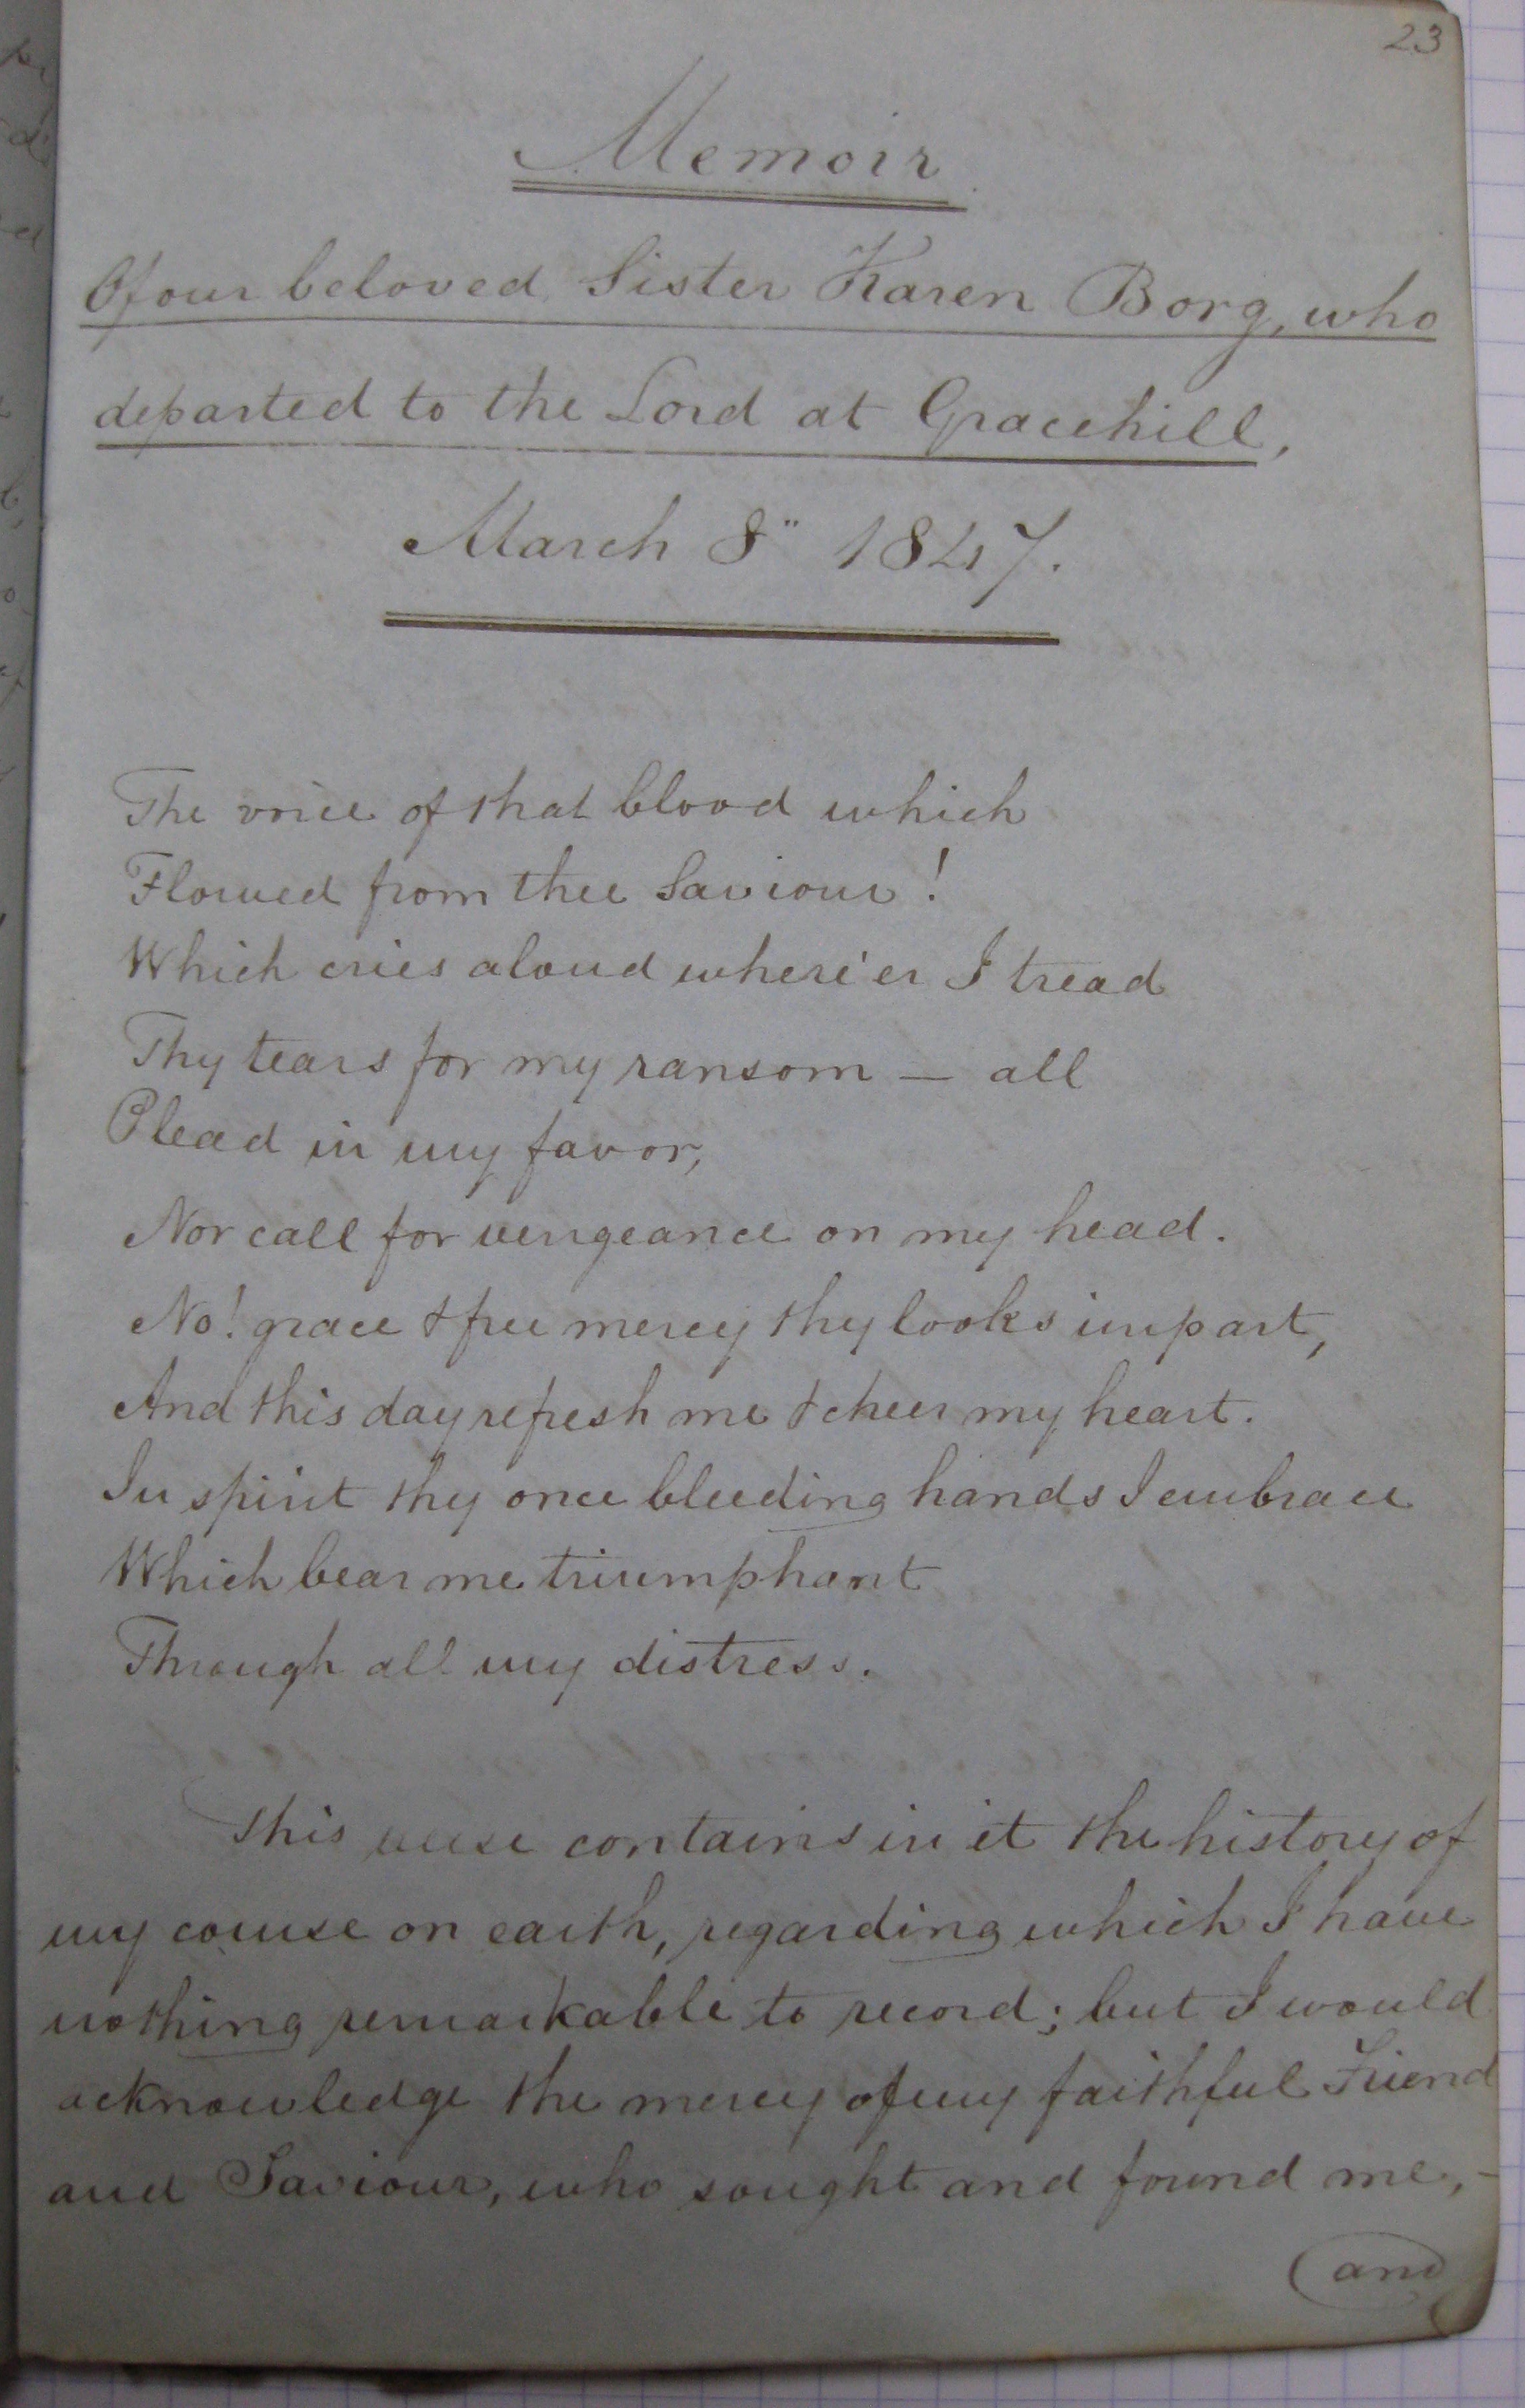 23
Memoir
Of our beloved Sister Karen Borg, who
departed to the Lord at Gracehill,
March 8" 1847.
The voice of that blood which
Flowed from thee Saviour!
Which cries aloud where'er I tread
Thy tears for my ransom — all
Plead in my favor,
Nor call for vengeance on my head.
No! grace & free mercy thy looks impart,
And this day refresh me & cheer my heart.
In spirit thy once bleeding hands I embrace
Which bear me triumphant
Through all my distress.
This verse contains in it the history of
my course on earth, regarding which I have
nothing remarkable to record; but I would
acknowledge the mercy of my faithful Friend
and Saviour, who sought and found me, -
(and